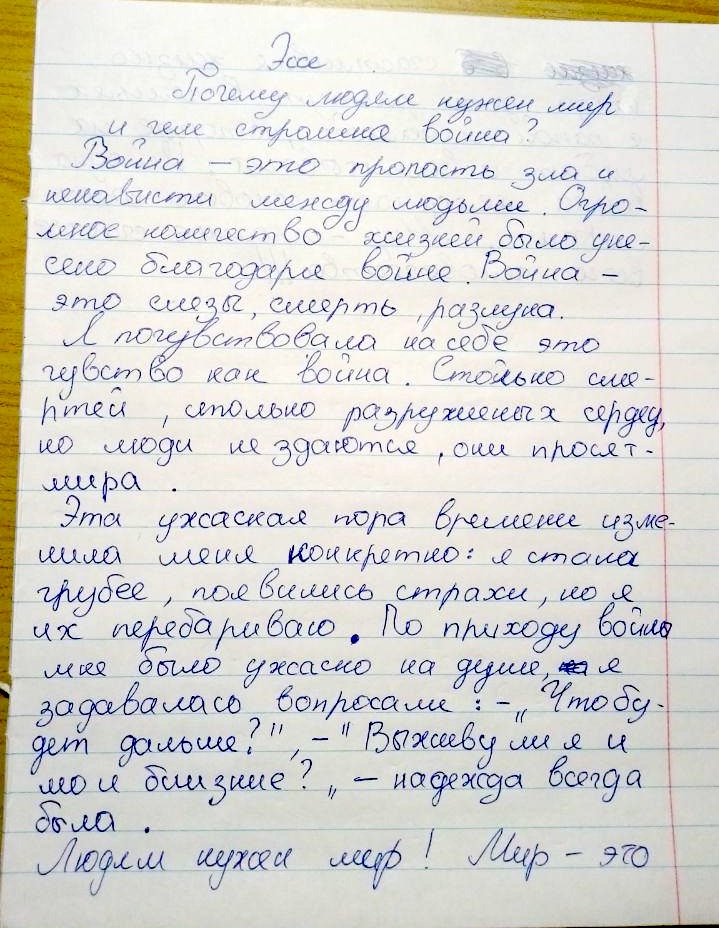 Эссе
Почему людям нужен мир
и чем страшна война?
Война – это пропасть зла и
ненависти между людьми. Огро-
мное количество – жизней было уне-
сено благодаря войне. Война –
это слезы, смерть, разлука.
Я почувствовала на себе это
чувство как война. Столько сме-
ртей, столько разрушеных сердец,
но люди не здаются, они просят-
мира.
Эта ужасная пора времени изме-
нила меня конкретно: я стала
грубее, появились страхи, но я
их перебариваю. По приходу войны
мне было ужасно на душе, я
задавалась вопросами: – „Что бу-
дет дальше?", – "Выживу ли я и
мои близкие?„ – надежда всегда
была.
Людям нужен мир! Мир – это